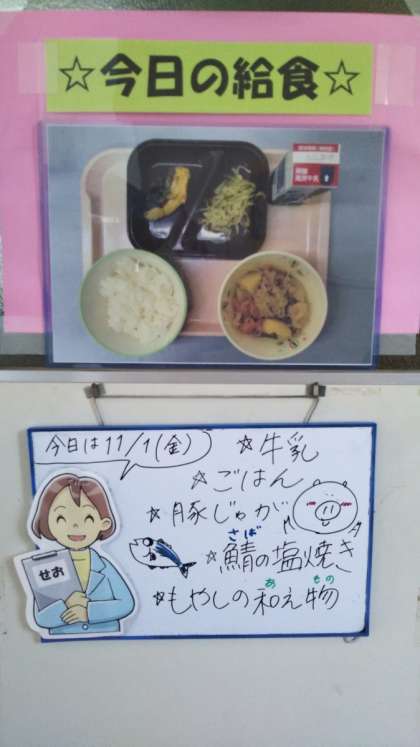 ☆今日の給食☆
今日は11/1(金)
☆牛乳
☆ごはん
☆豚じゃが
さば
☆鯖の塩焼き
あ もの
☆もやしの和え物
せお